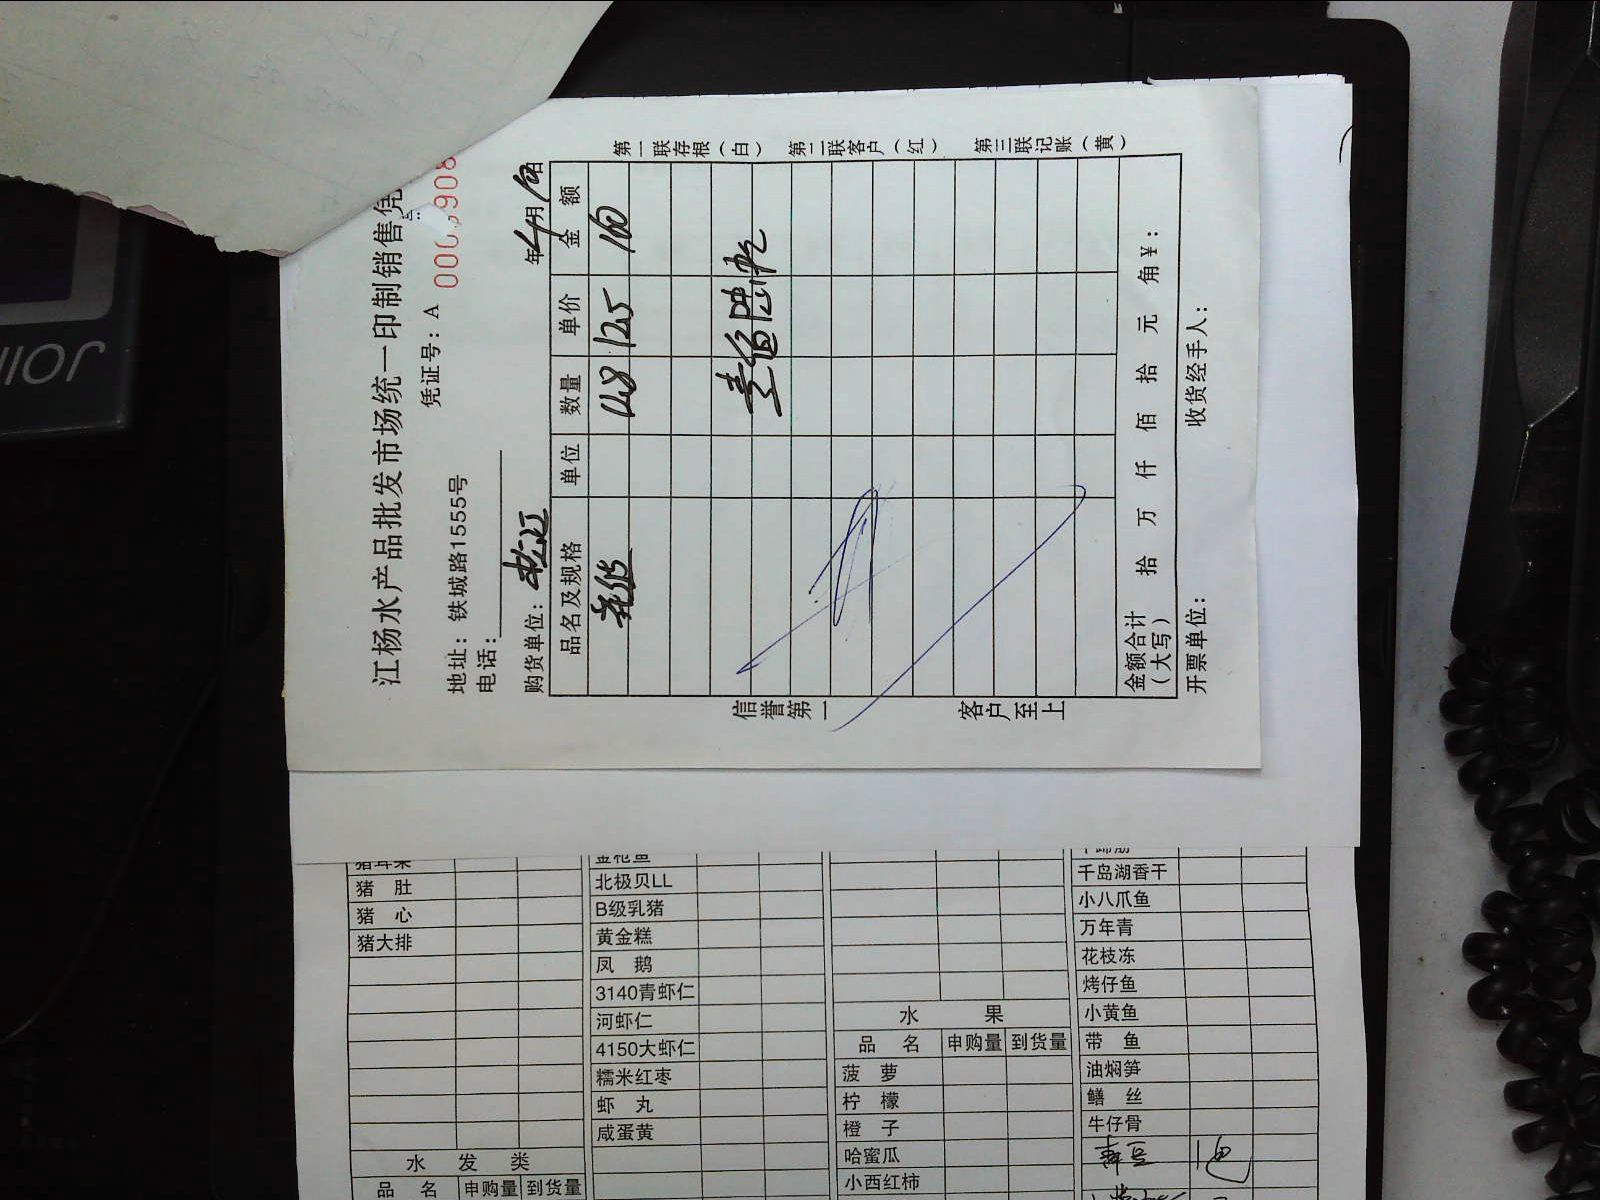 江杨水产品批发市场统一印制销售凭
地址：铁城路1555号
凭证号：A 000 908
电话：
购货单位：松江
年4月10日
品名及规格 单位 数量 单价 金额
花 148 125 100
信誉第一
客户至上
第一联存根（白） 第二联客户（红） 第三联记账（黄）
金额合计（大写） 拾 万 仟 佰 拾 元 角 ¥：
开票单位： 收货经手人：
JOLI
猪耳朵
猪 肚
猪 心
猪大排
水 发 类
品 名 申购量 到货量
金枪鱼
北极贝LL
B级乳猪
黄金糕
凤 鹅
3140青虾仁
河虾仁
4150大虾仁
糯米红枣
虾 丸
咸蛋黄
水 果
品 名 申购量 到货量
菠 萝
柠 檬
橙 子
哈蜜瓜
小西红柿
牛蹄筋
千岛湖香干
小八爪鱼
万年青
花枝冻
烤仔鱼
小黄鱼
带 鱼
油焖笋
鳝 丝
牛仔骨
青豆 1包